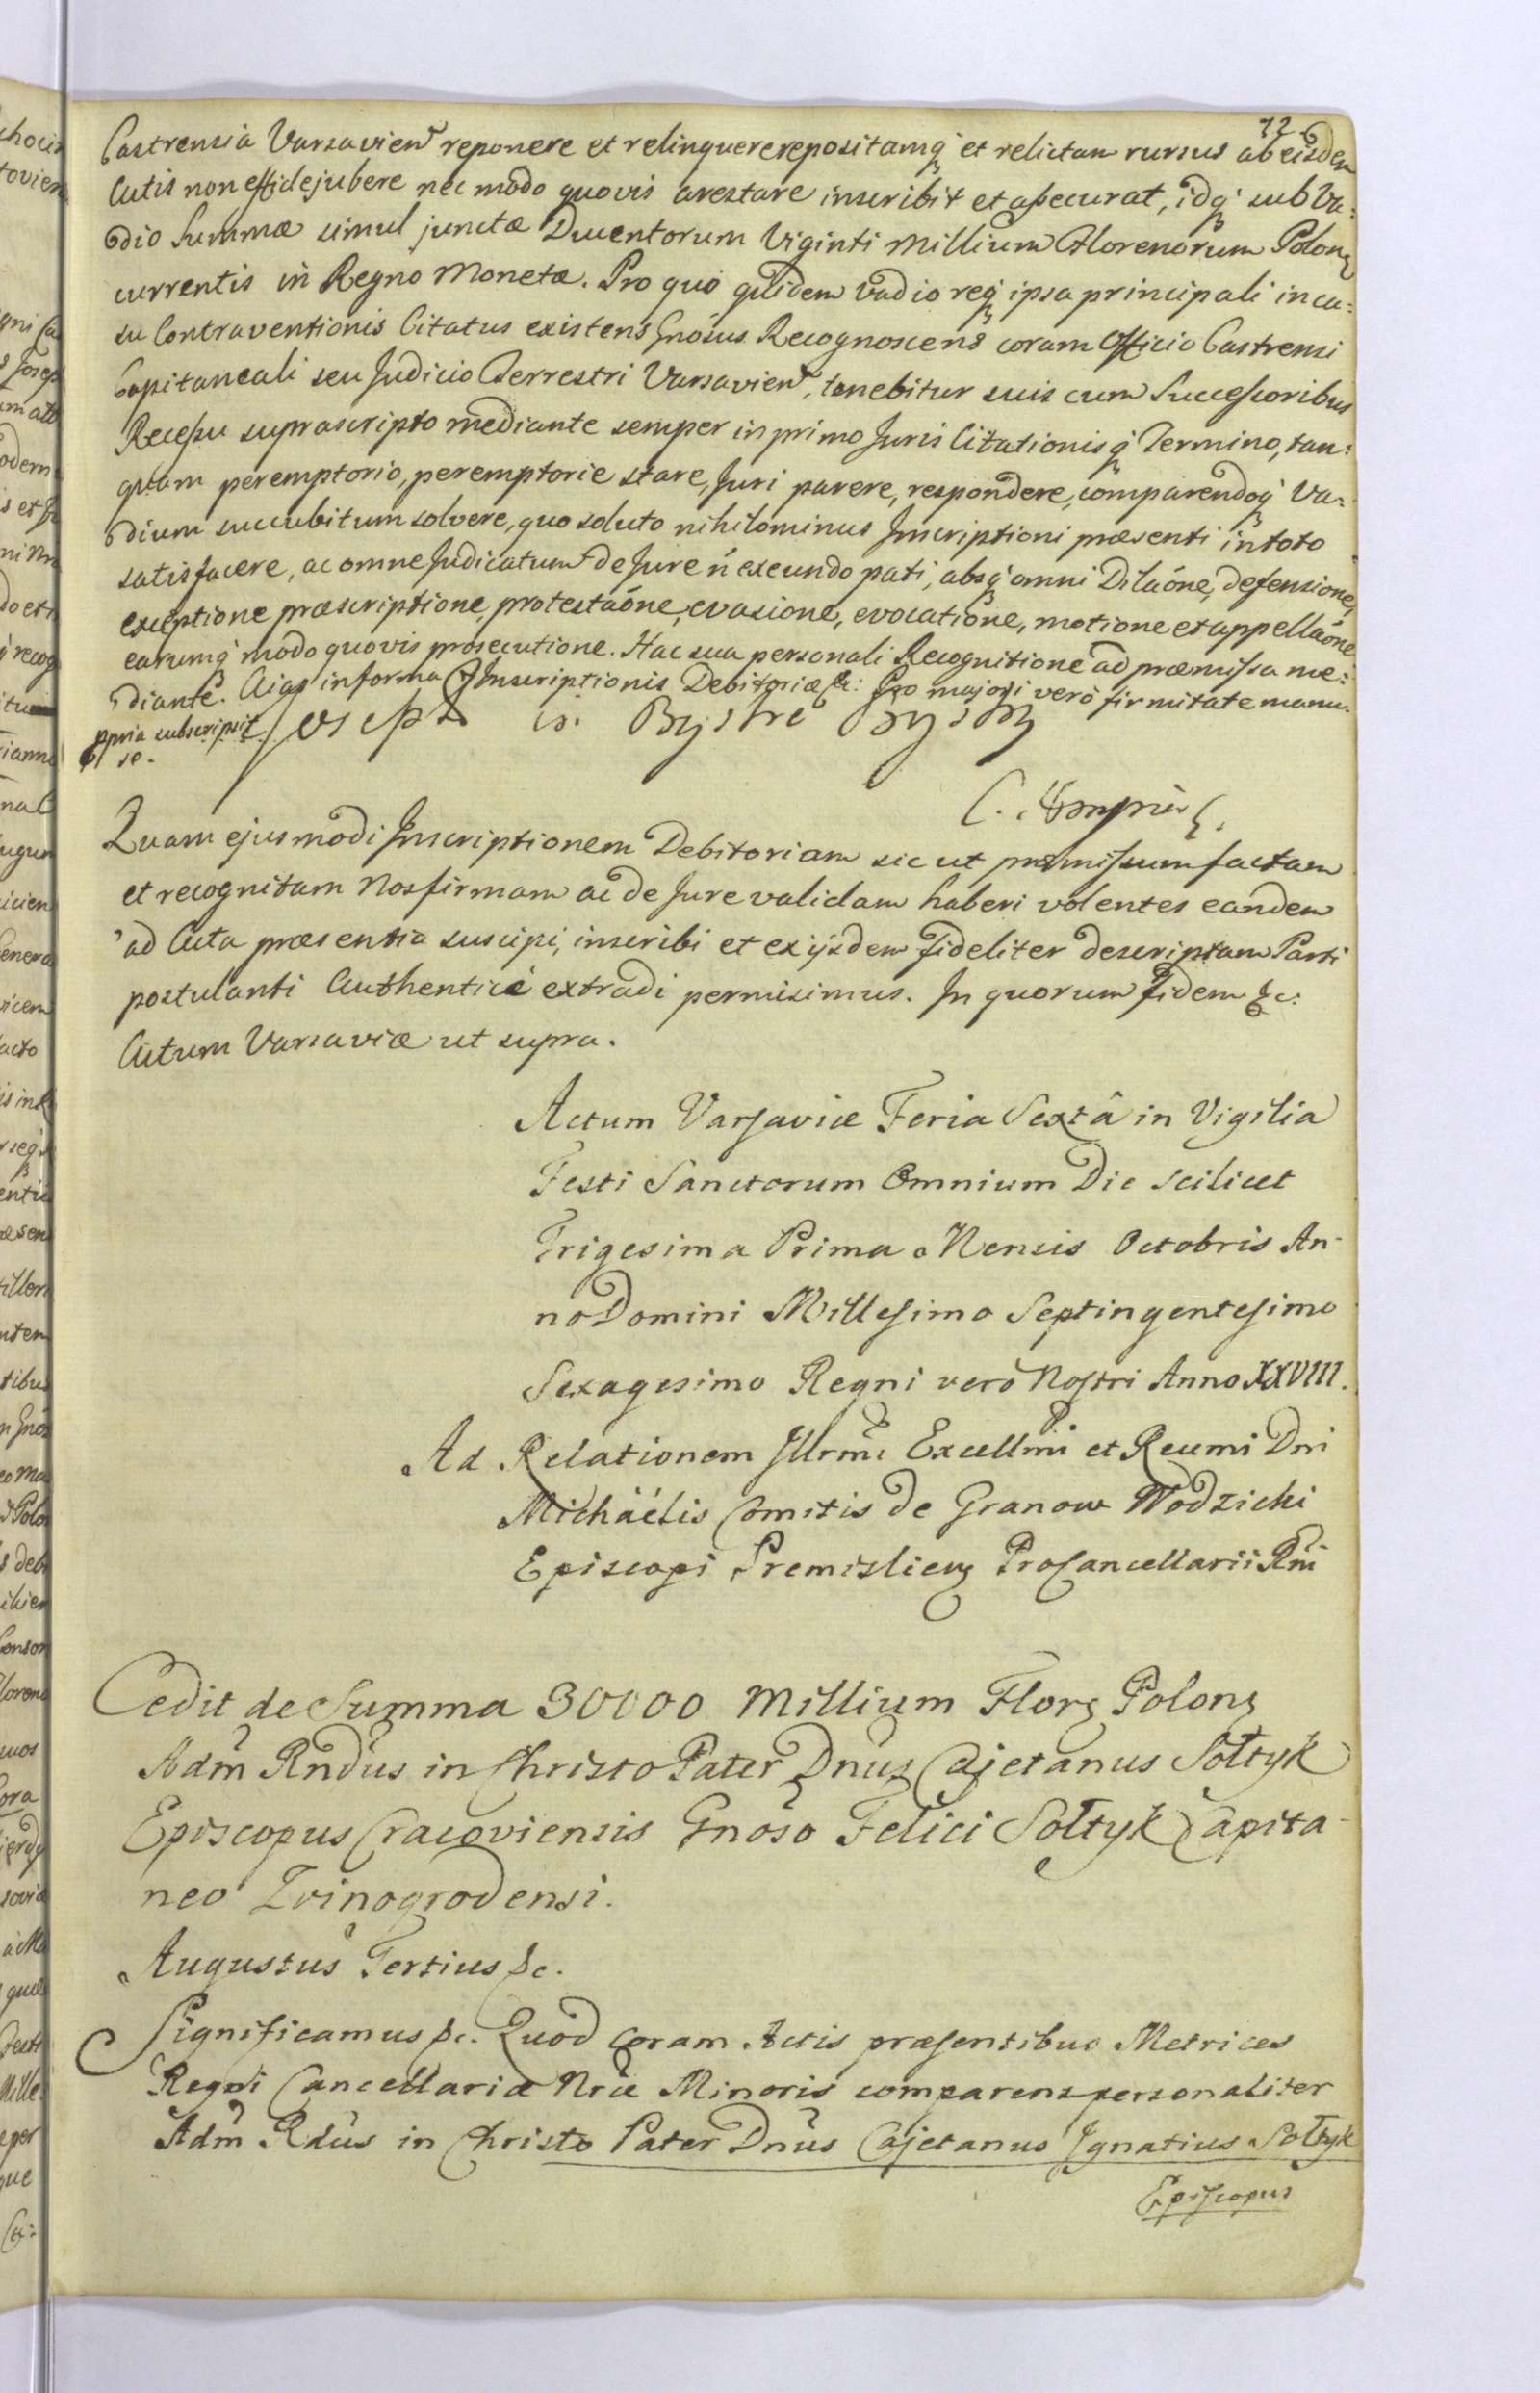 72
Castrensia Varsavien reponere et relinquere repositamq et relictam rursus ab eisdem
Actis non effidejubere nec modo quovis arestare inscribit et assecurat, idq sub Va:
dio Summæ simul junctæ Ducentorum Viginti Millium Florenorum Polon
currentis in Regno Monetæ. Pro quo quidem Vadio req ipsa principali in ca:
su Contraventionis Citatus existens Gnosus Recognoscens coram Officio Castrensi
Capitaneali seu Judicio Terrestri Varsavien, tenebitur suis cum Successoribus
Recessu suprascripto mediante semper in primo Juris Citationisq Termino, tan:
quam peremptorio, peremptorie stare, Juri parere, respondere, comparendoq Va:
dium succubitum solvere, quo soluto nihilominus Inscriptioni præsenti in toto
satisfacere, ac omne Judicatum de Jure ñ exeundo pati, absq omni Dilaóne, defensione,
exceptione præscriptione, protestaóne, evasione, evocatione, motione et appellaóne
earumq modo quovis prosecutione. Hac sua personali Recognitione ad præmissa me:
diante. Aias in forma Inscriptionis Debitoriæ &c: Pro majori vero firmitate manu
ppria subscripsit
se.
Bystre Bystry
Quam ejusmodi Inscriptionem Debitoriam sic ut præmissum factam
et recognitam Nos firmam ac de Jure validam haberi volentes eandem
ad Acta præsentia suscipi, inscribi et ex ijsdem fideliter descriptam Parti
postulanti Authenticè extradi permisimus. In quorum fidem &c:
Actum Varsaviæ ut supra.
Actum Varsaviæ Feria Sextâ in Vigilia
Festi Sanctorum Omnium Die scilicet
Trigesima Prima Mensis Octobris An-
no Domini Millesimo Septingentesimo
Sexagesimo Regni verò Nostri Anno XXVIII.
Ad Relationem Illrmi Excellmi et Reumi Dni
Michäélis Comitis de Granow Wodzicki
Episcopi Premislien ProCancellarii Rni
Cedit de Summa 30000 Millium Flor Polon
Adm Rndus in Christo Pater Dnus Cajetanus Sołtyk
Episcopus Cracoviensis Gnoso Felici Sołtyk Capita-
neo Zvinogrodensi.
Augustus Tertius &c.
Significamus &c. Quod coram Actis præsentibus Metrices
Regni Cancellariæ Nræ Minoris comparens personaliter
Adm Rdus in Christo Pater Dnus Cajetanus Ignatius Sołtyk
Episcopus